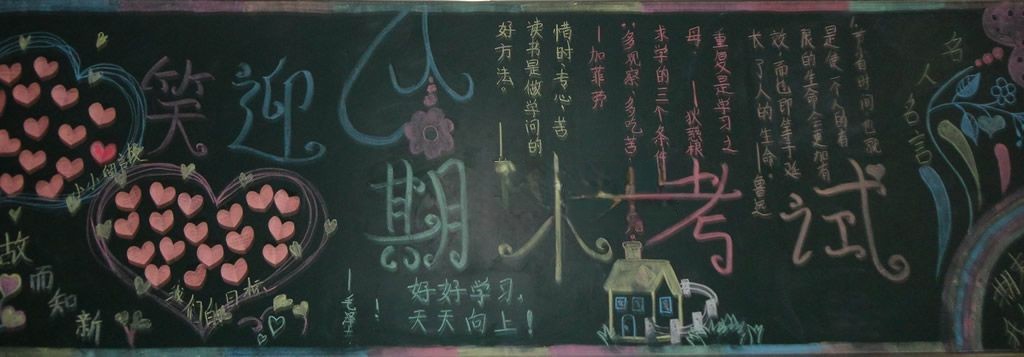 笑迎期末考试
名人名言
1.节省时间也就
是使一个人的有
限的生命会更加有
效而也即等于延
长了人的生命。—鲁迅
重复是学习之
母。—狄慈根
求学的三个条件
多观察多吃苦
—加菲劳
惜时、专心、苦
读书是做学问的
好方法。
好好学习，
天天向上！
我们的目标
故而知新